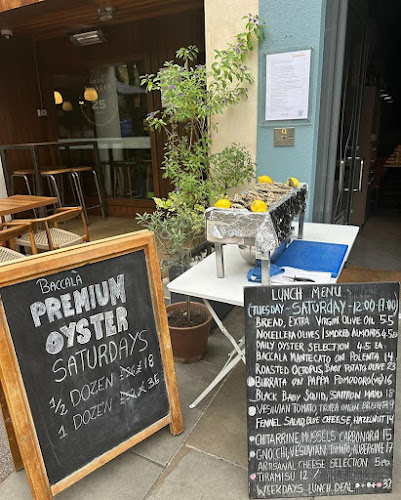 BACCALÀ
PREMIUM
OYSTER
SATURDAYS
1/2 DOZEN 18
1 DOZEN 36
LUNCH MENU
(TUESDAY - SATURDAY -12:00-17:00)
BREAD, EXTRA VIRGIN OLIVE OIL 5.5
NOCELLERA OLIVES | SMOKED ALMONDS 4.5
DAILY OYSTER SELECTION 4.5 EA
BACCALÀ MANTECATO ON POLENTA 14
ROASTED OCTOPUS, BABY POTATO OLIVE 23
BURRATA ON PAPPA POMODORO (VG) 16
BLACK BABY SQUID, SAFFRON MAYO 18
VESUVIAN TOMATO
FENNEL SALAD, BLUE CHEESE, HAZELNUT 14
CHITARRINE, MUSSELS CARBONARA 15
GNOCCHI, VESUVIAN TOMATO, AUBERGINE 17
ARTISANAL CHEESE SELECTION 5 EA
TIRAMISU 12
WEEKDAYS LUNCH DEAL 32
25